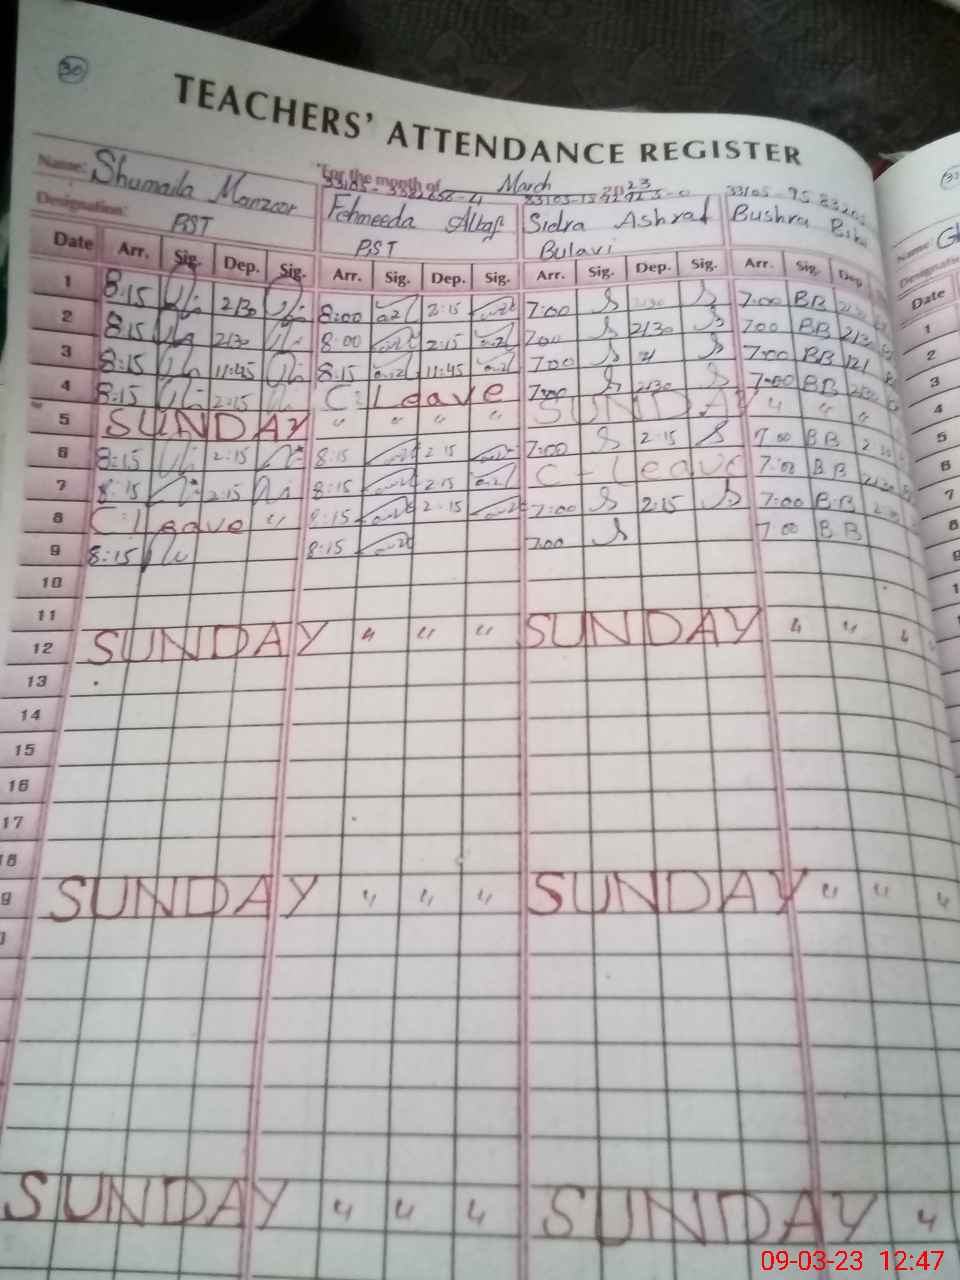 30
TEACHERS' ATTENDANCE REGISTER
Name: Shumaila Manzoor
For the month of March 2023
Designation: PST
Fehmeeda Altaf
PST
Sidra Ashraf
Bulavi
Bushra
Date Arr. Sig. Dep. Sig. Arr. Sig. Dep. Sig. Arr. Sig. Dep. Sig. Arr. Sig. Dep.
1 8:15 2/30 8:00 2:15 7:00 7:00 BB
2 8:15 2/30 8:00 2:15 700 2/30 700 BB 2/30
3 8:15 11:45 8:15 11:45 700 7:00 BB 12/
4 8:15 2:15 C. Leave 7:00 2/30 7:00 BB
5 SUNDAY " " " " SUNDAY " " "
6 8:15 2:15 8:15 2:15 7:00 2:15 7:00 BB
7 8:15 2:15 8:15 2:15 C - Leave 7:00 BB 2/30
8 C. Leave " 8:15 2:15 7:00 2:15 7:00 B.B
9 8:15 8:15 7:00 7:00 BB
10
11
12 SUNDAY " " " SUNDAY " " "
13
14
15
16
17
18
9 SUNDAY " " " SUNDAY " " "
SUNDAY " " " SUNDAY "
Name: 
Designation
Date
1
2
3
4
5
6
7
8
9
09-03-23 12:47